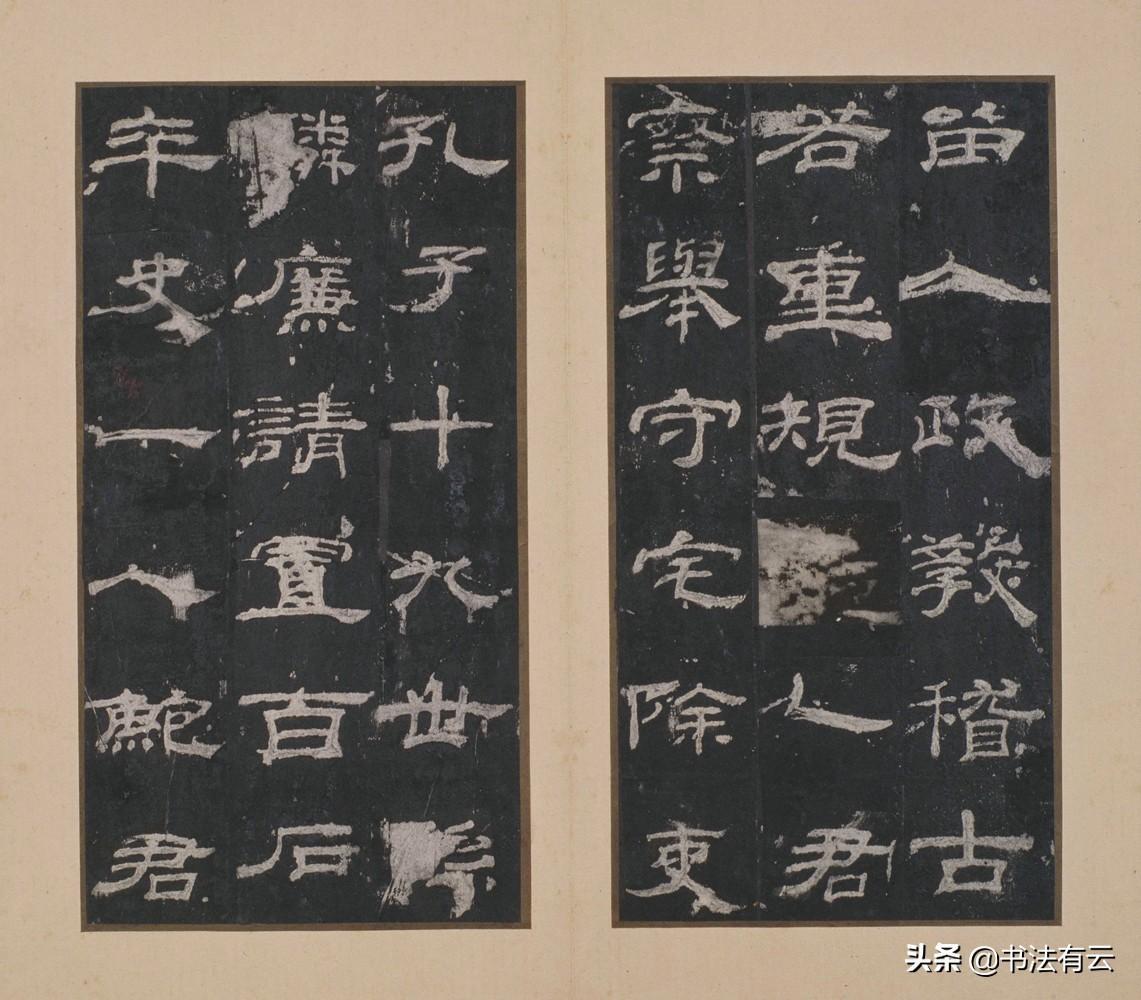 留人政教稽古
若重規乙君
察舉守宅除吏
孔子十九世孫
麟廉請置百石
卒史一人鮑君
头条 @书法有云